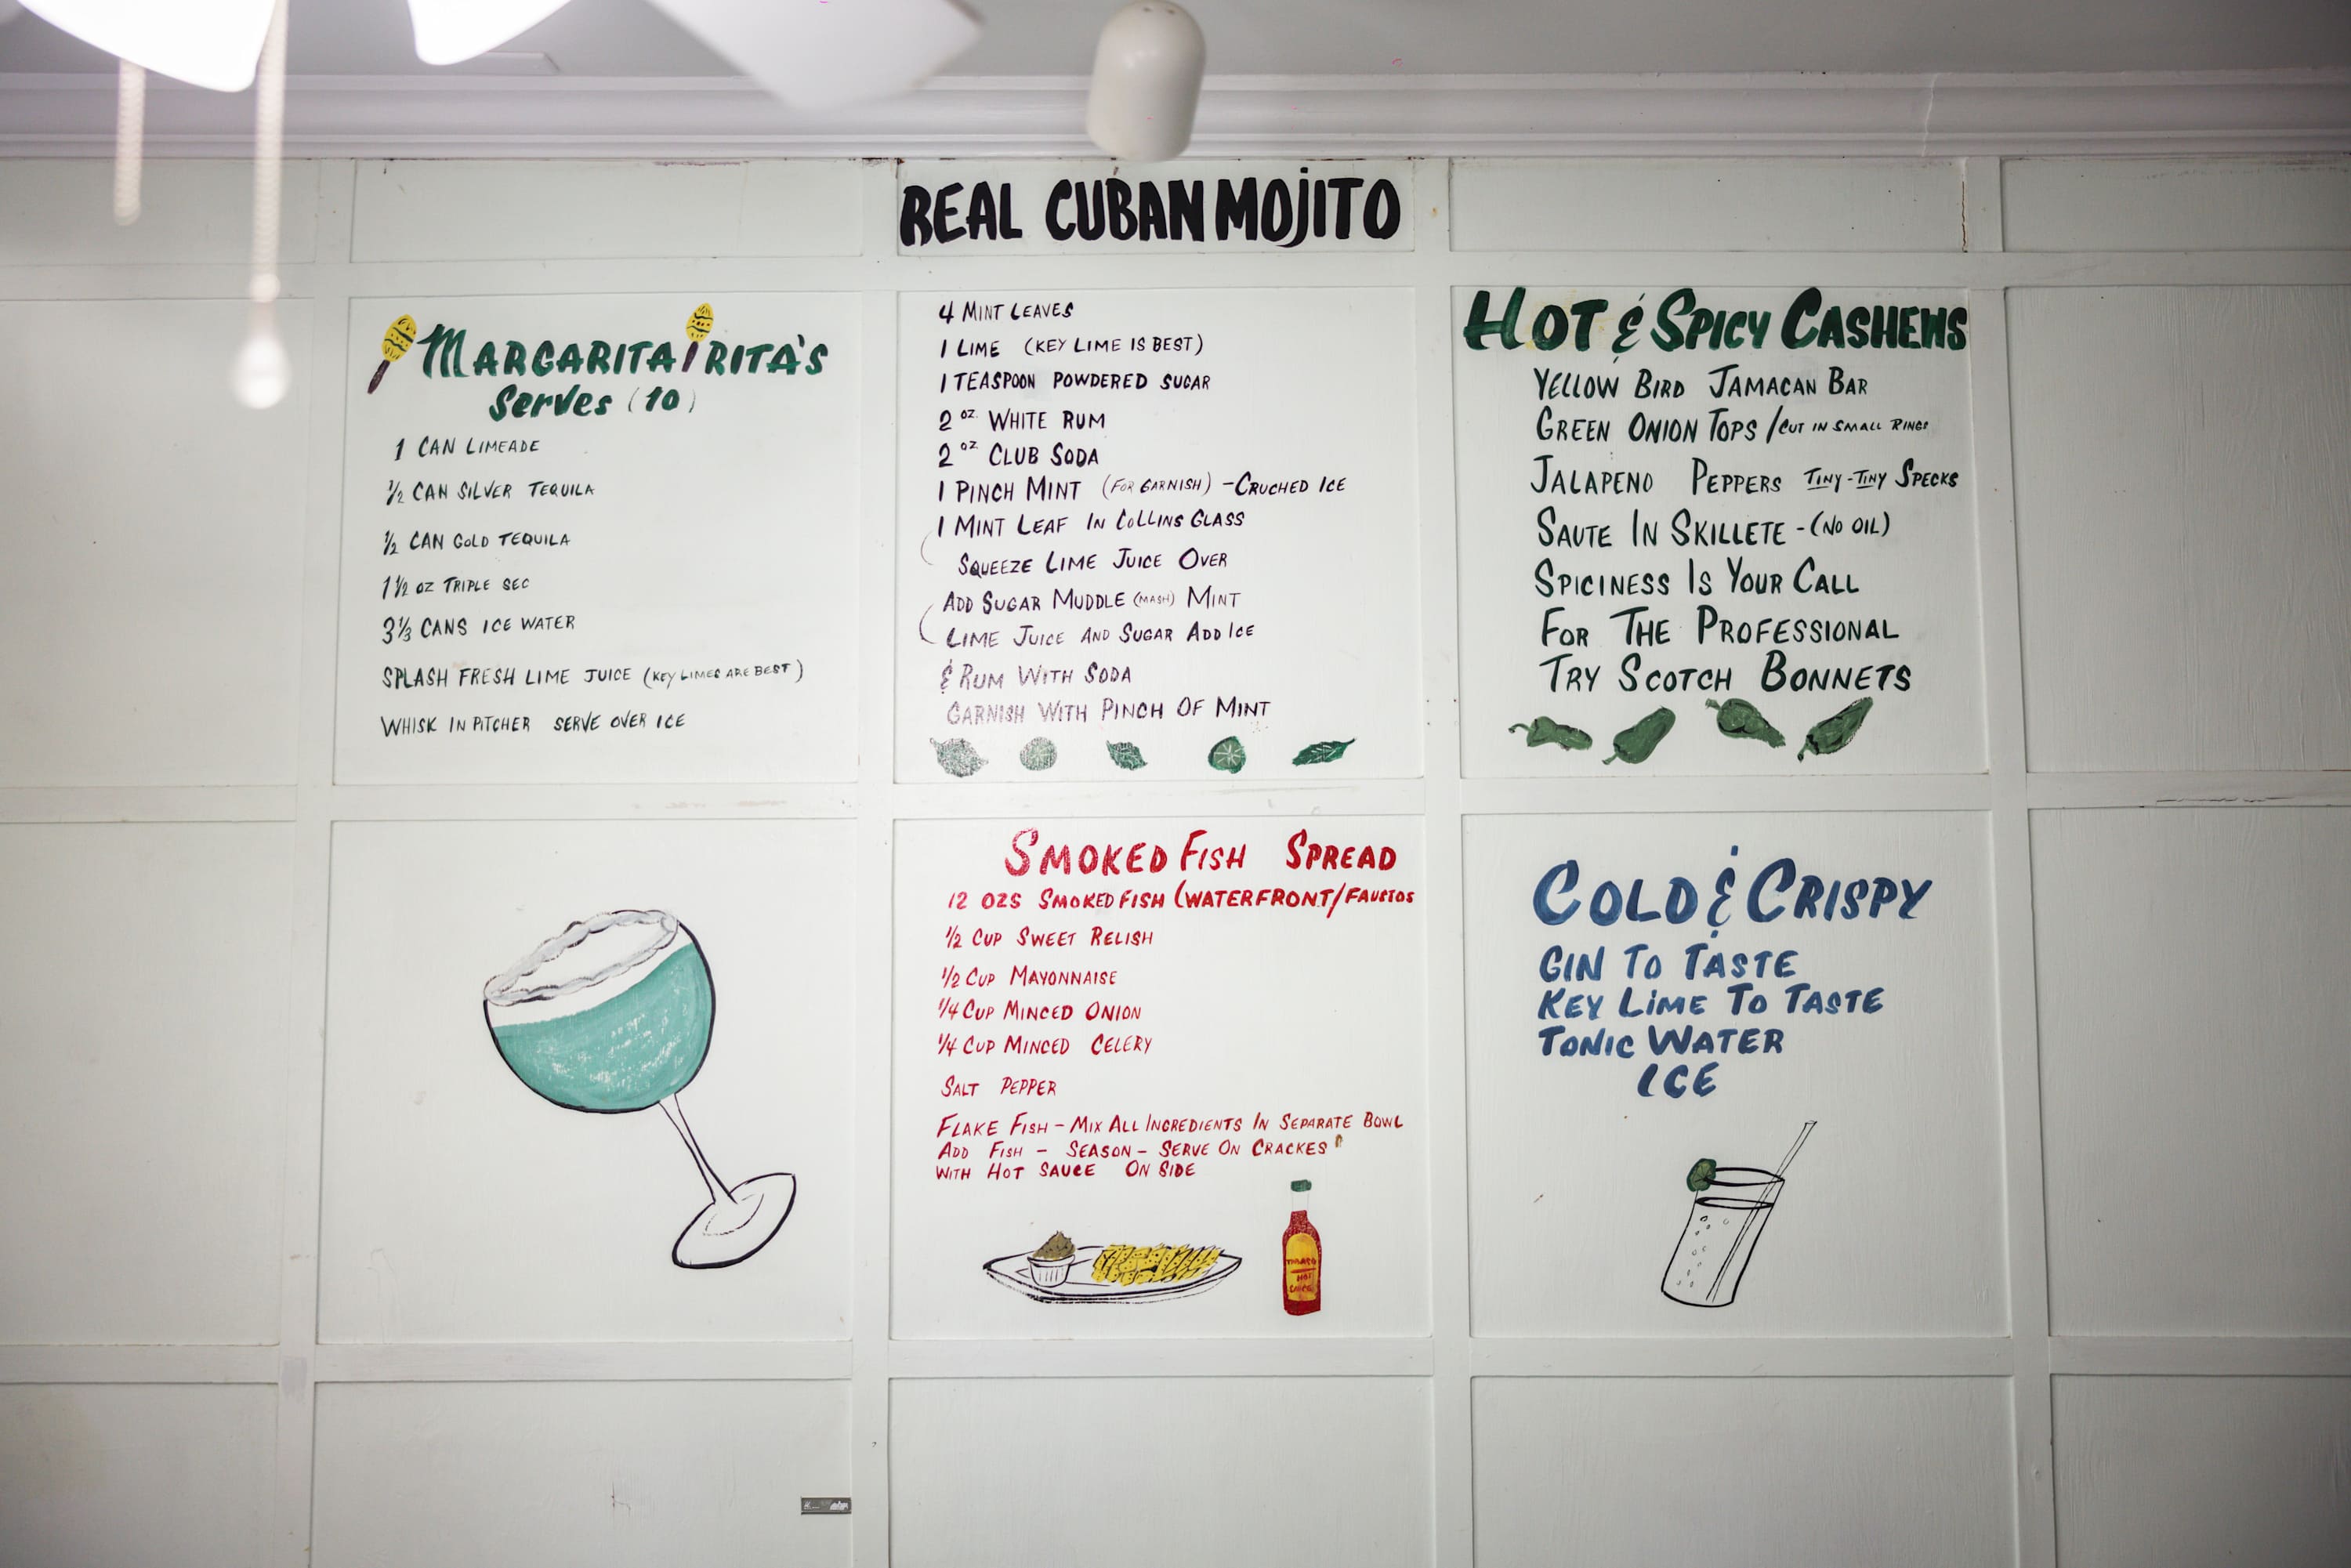 REAL CUBAN MOJITO
MARGARITA RITA'S
Serves (10)
1 CAN LIMEADE
1/2 CAN SILVER TEQUILA
1/2 CAN GOLD TEQUILA
1 1/2 OZ TRIPLE SEC
3 1/3 CANS ICE WATER
SPLASH FRESH LIME JUICE (KEY LIMES ARE BEST)
WHISK IN PITCHER SERVE OVER ICE
4 MINT LEAVES
1 LIME (KEY LIME IS BEST)
1 TEASPOON POWDERED SUGAR
2 OZ. WHITE RUM
2 OZ. CLUB SODA
1 PINCH MINT (FOR GARNISH) - CRUCHED ICE
1 MINT LEAF IN COLLINS GLASS
SQUEEZE LIME JUICE OVER
ADD SUGAR MUDDLE (MASH) MINT
LIME JUICE AND SUGAR ADD ICE
& RUM WITH SODA
GARNISH WITH PINCH OF MINT
HOT & SPICY CASHEWS
YELLOW BIRD JAMACAN BAR
GREEN ONION TOPS / CUT IN SMALL RINGS
JALAPENO PEPPERS TINY-TINY SPECKS
SAUTE IN SKILLETE - (NO OIL)
SPICINESS IS YOUR CALL
FOR THE PROFESSIONAL
TRY SCOTCH BONNETS
SMOKED FISH SPREAD
12 OZS SMOKED FISH (WATERFRONT/FAUSTOS
1/2 CUP SWEET RELISH
1/2 CUP MAYONNAISE
1/4 CUP MINCED ONION
1/4 CUP MINCED CELERY
SALT PEPPER
FLAKE FISH - MIX ALL INGREDIENTS IN SEPARATE BOWL
ADD FISH - SEASON - SERVE ON CRACKES
WITH HOT SAUCE ON SIDE
HOT
COLD & CRISPY
GIN TO TASTE
KEY LIME TO TASTE
TONIC WATER
ICE